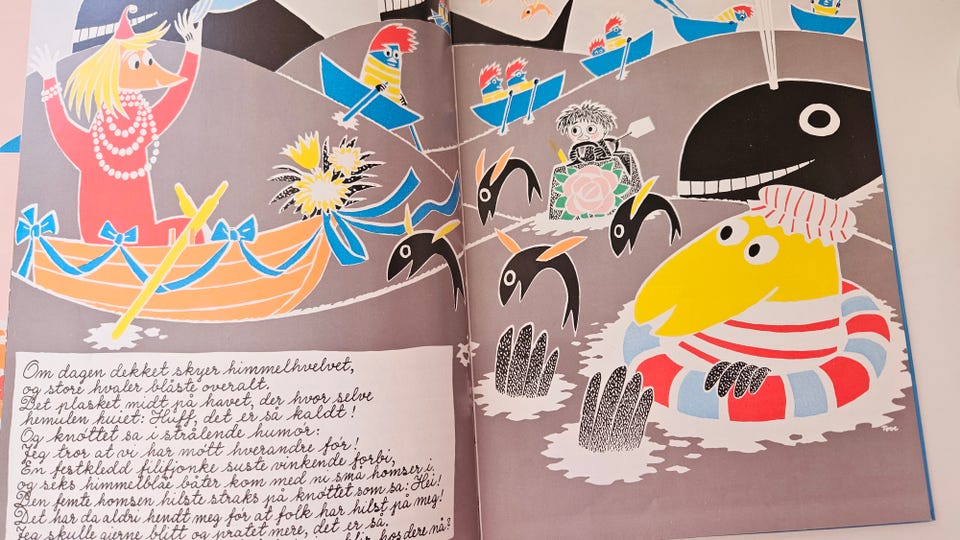 Om dagen dekket skyer himmelhvelvet,
og store hvaler blåste overalt.
Det plasket midt på havet, der hvor selve
hemulen kuiet: Huff, det er så kaldt!
Og knøttet sa i strålende humør:
Jeg tror at vi har møtt hverandre før!
En festkledd filifjonke suste vinkende forbi,
og seks himmelblåe båter kom med ni små homser i.
Den femte homsen hilste straks på knøttet som sa: Hei!
Det har da aldri hendt meg før at folk har hilst på meg!
Jeg skulle gjerne blitt og pratet mere, det er så.
blir hos dere nå?
Tove